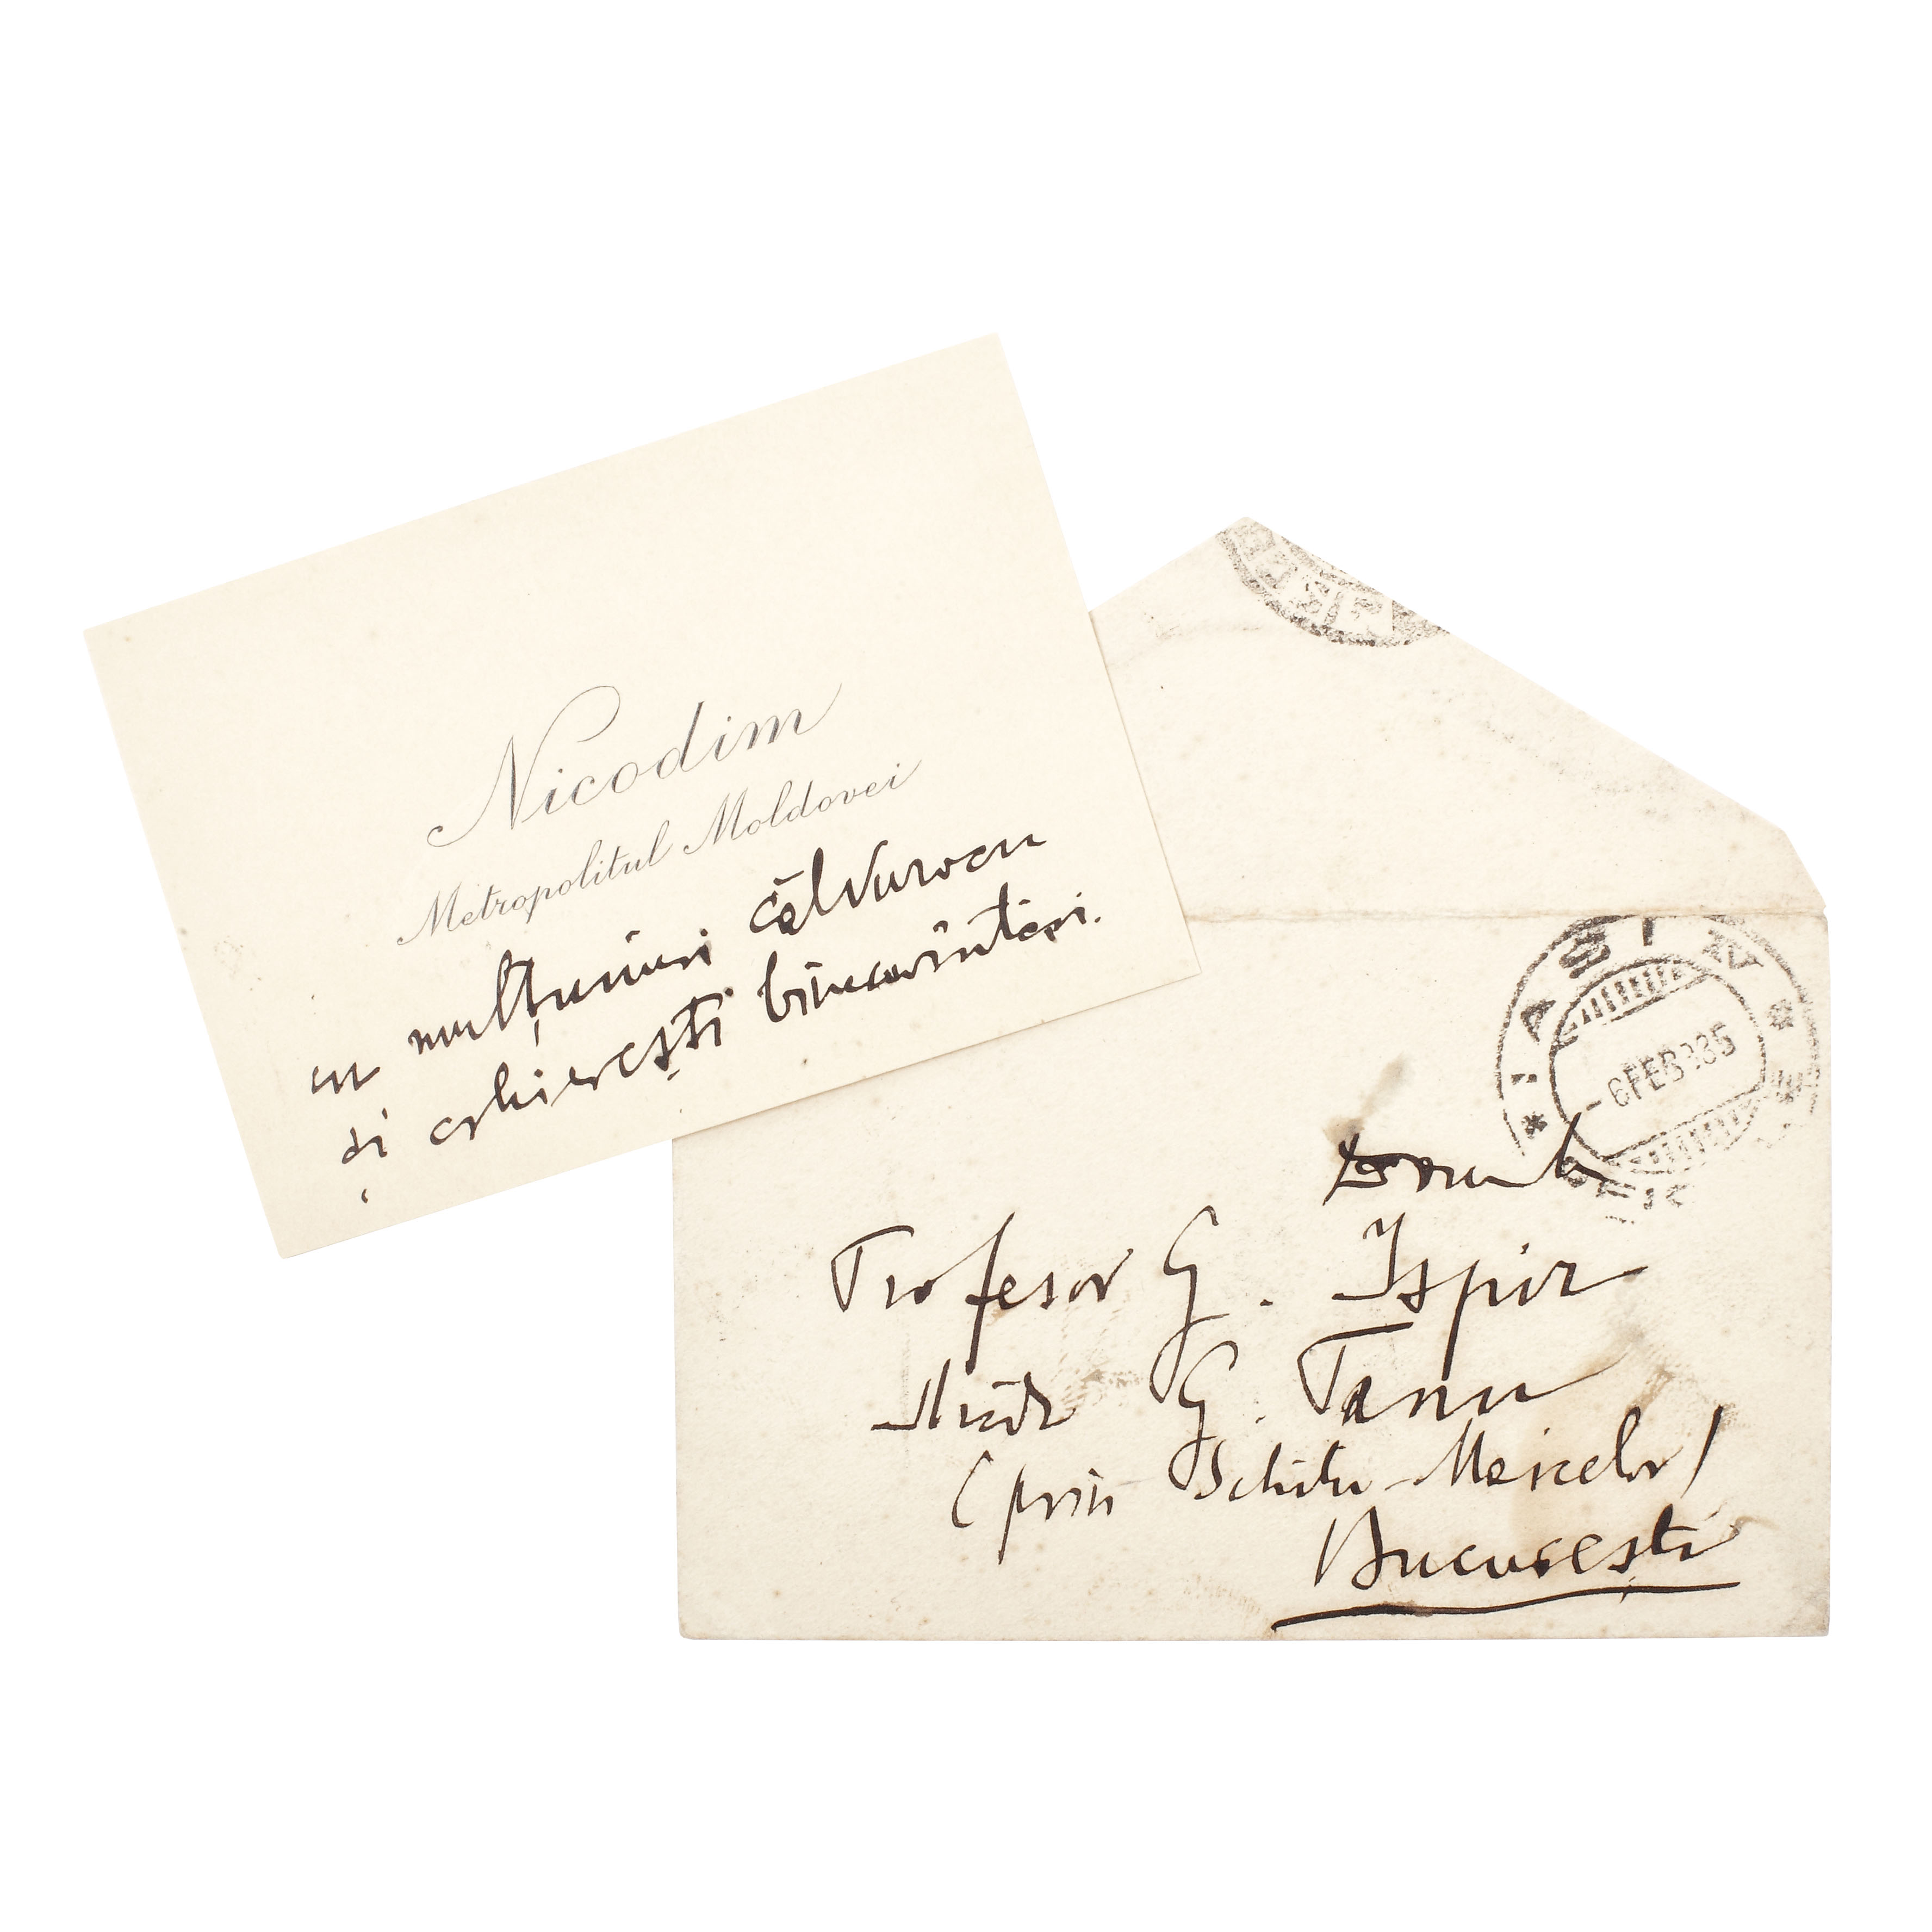 Nicodim
Metropolitul Moldovei
cu mulțumiri călduroase
și arhierești binecuvântări.
IAȘI
-6 FEB 935
Domnului
Profesor G. Ispir
Str. G. Tanu
(prin Schitu-Maicelor)
București